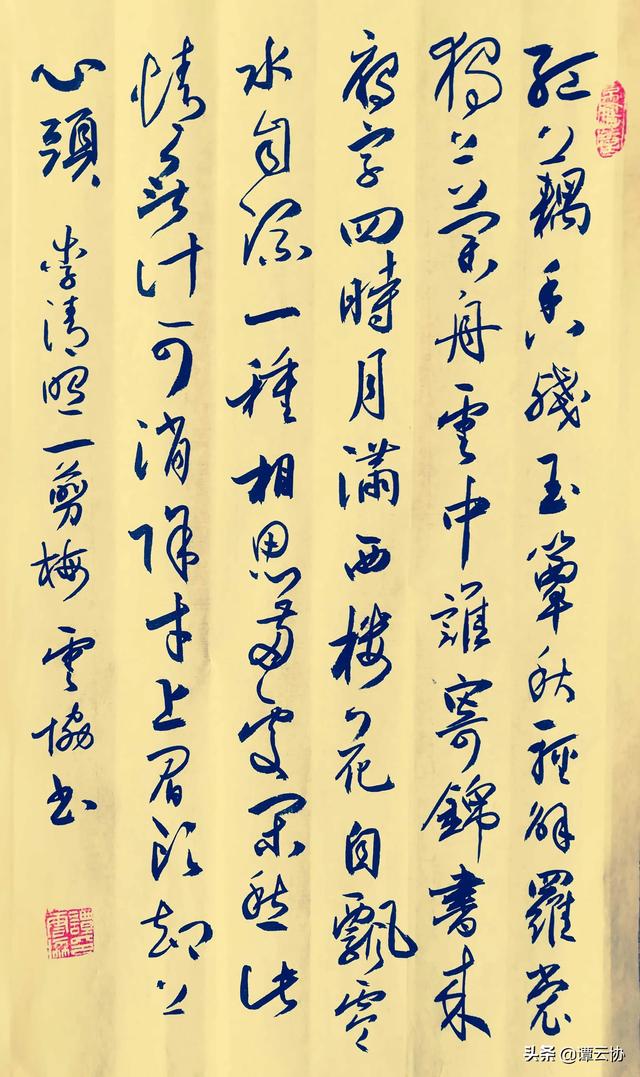 紅藕香殘玉簟秋輕解羅裳
獨上蘭舟雲中誰寄錦書來
雁字回時月滿西樓花自飄零
水自流一種相思兩處閑愁此
情無計可消除才上眉頭卻上
心頭 李清照一剪梅 雲協書
头条 @谭云协